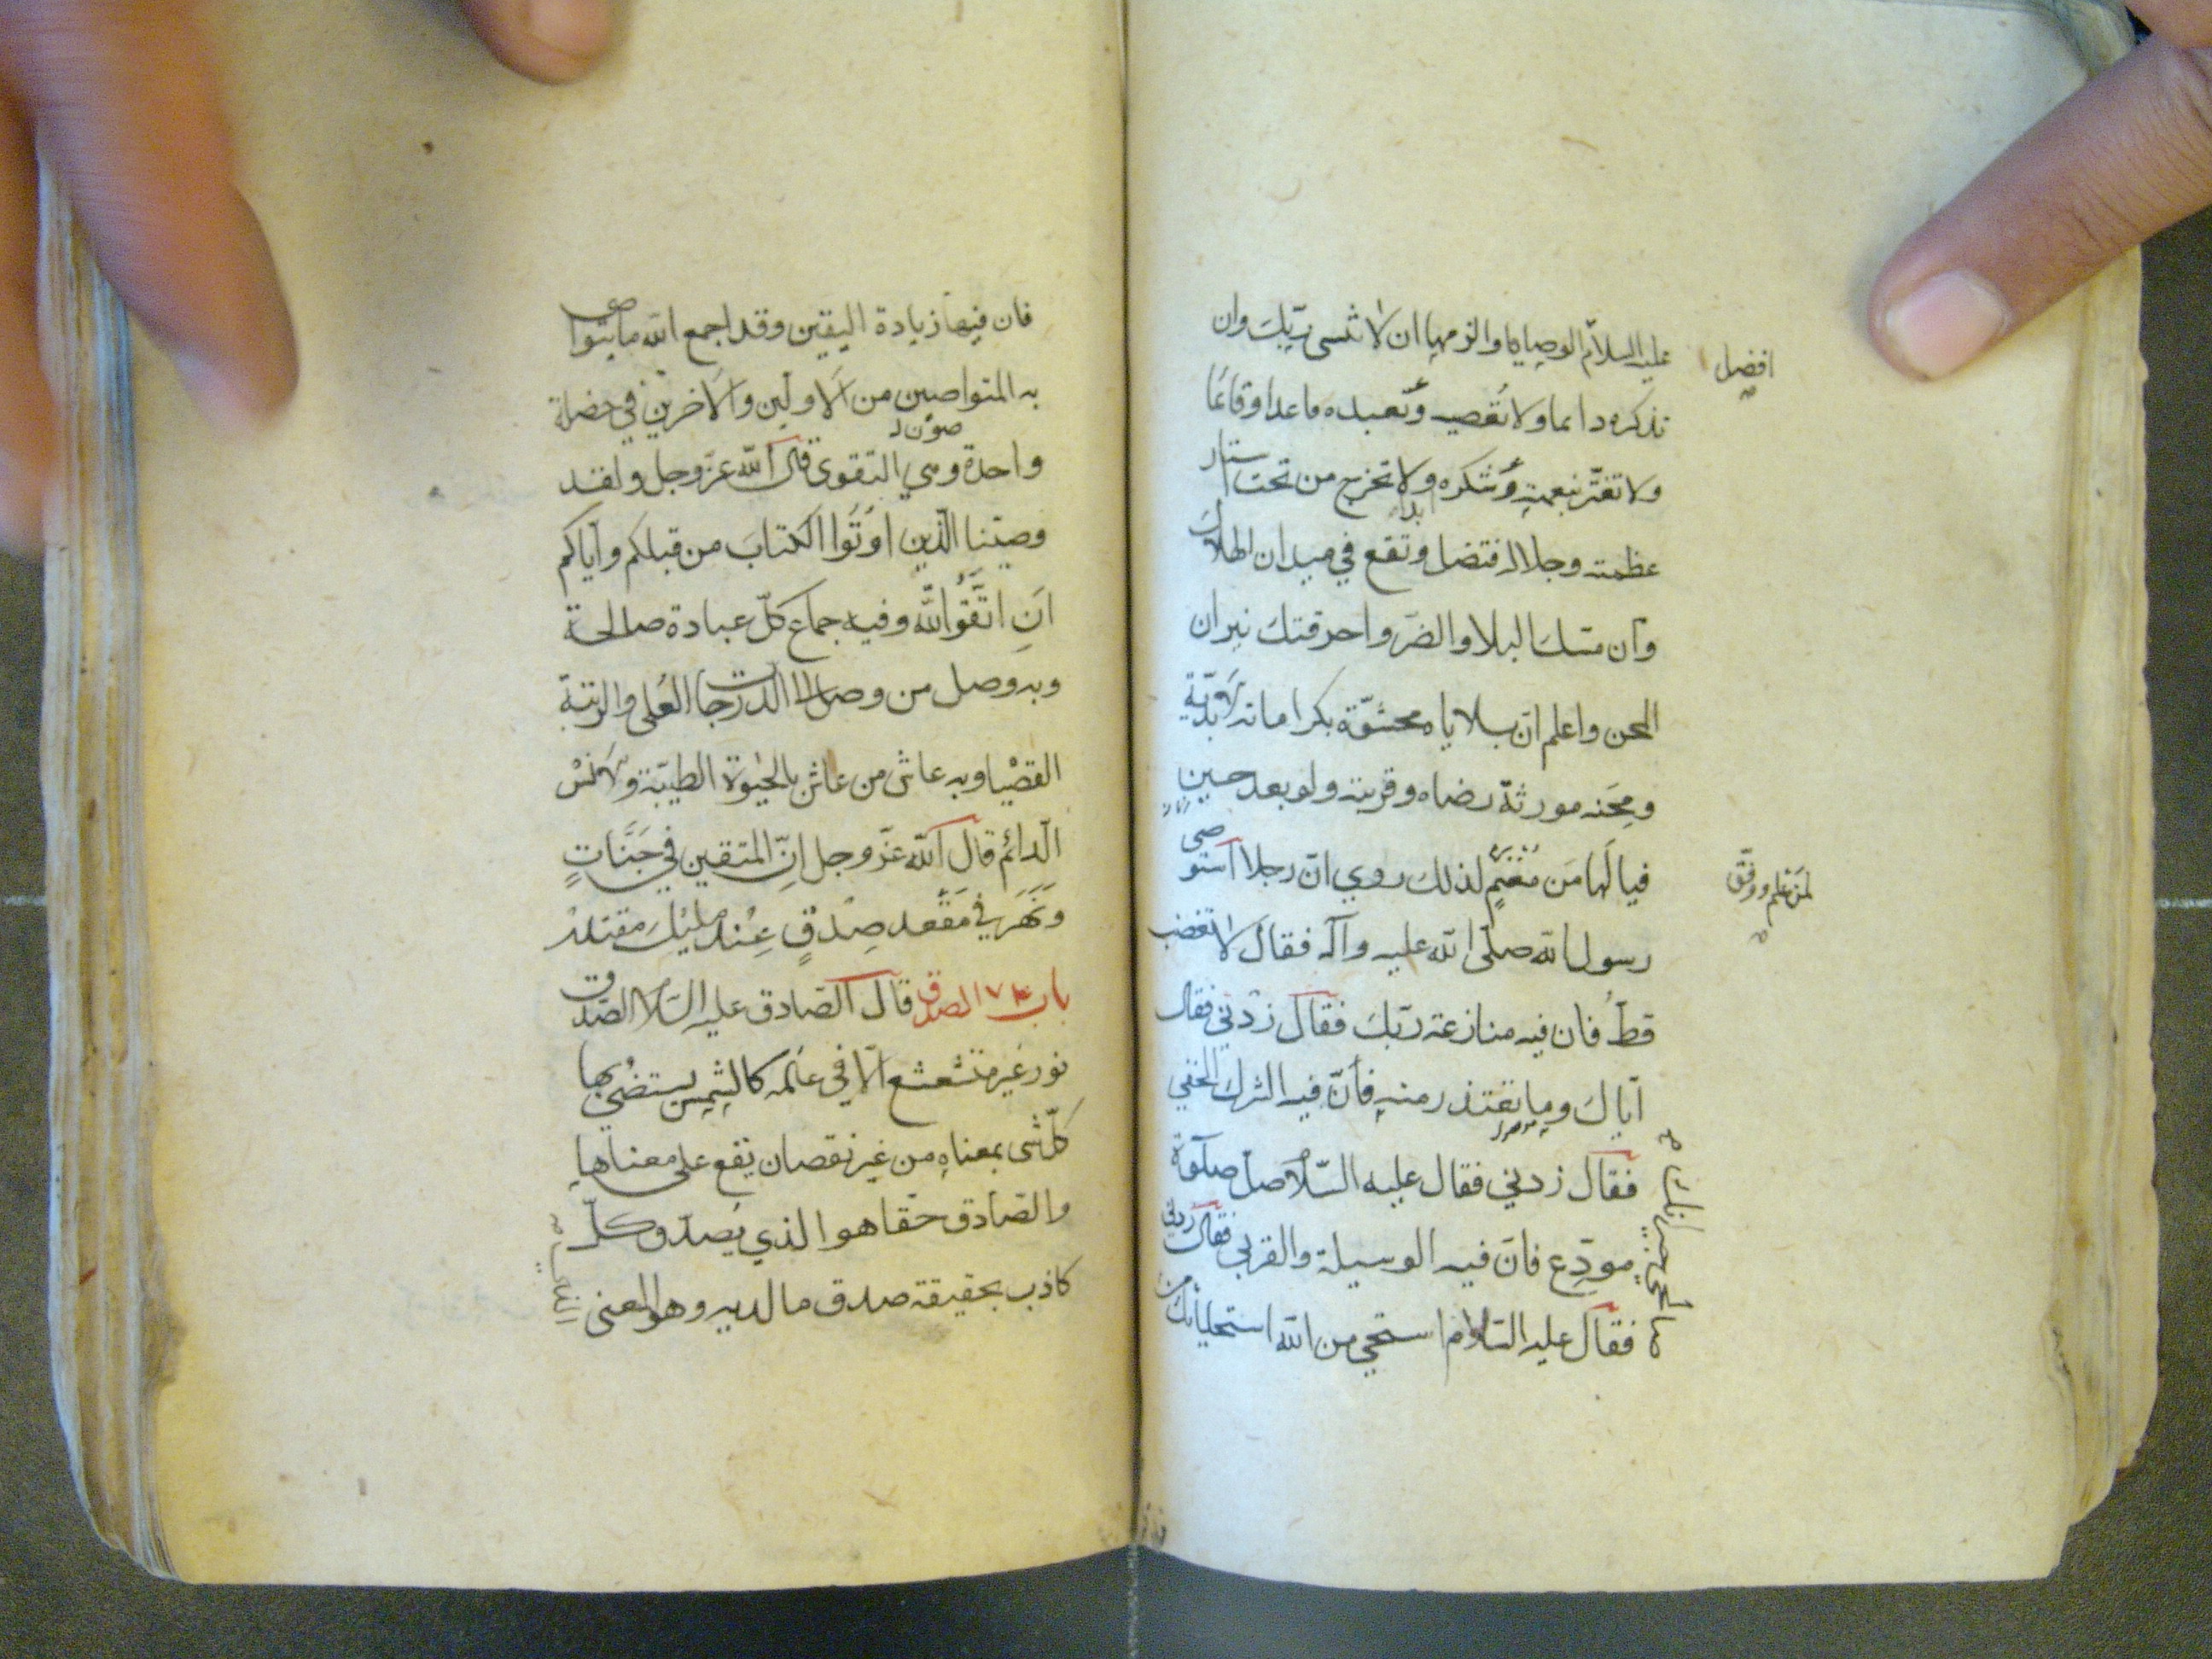 عليه السلام الوصايا والزمها ان لا تنسى ربك وان
افضل
تذكره دايما ولا تعصيه وتعبده قاعدا وقائما
ولا تغتر بنعمته وتشكره ولا تخرج من تحت استار
ابدا
عظمته وجلاله فتضل وتقع في ميدان الهلاك
وان مسك البلا والضر واحرقتك نيران
المحن واعلم ان بلاياه محشوة بكراماته الابدية
ومحنه مورثة رضاه وقربته ولو بعد حين
فيا لها من مغنم لذلك روي ان رجلا استوصى
لمن علم ووفق
رسول الله صلى الله عليه وآله فقال لا تغضب
قط فان فيه منازعة ربك فقال زدني فقال
اياك وما تعتذر منه فان فيه الشرك الخفي
فقال زدني فقال عليه السلام صل صلوة
مودع فان فيه الوسيلة والقربى فقال زدني
فقال عليه السلام استحي من الله استحياءك من
فان فيها زيادة اليقين وقد اجمع الله ما يتواصى
به المتواصين من الاولين والآخرين في خصلة
صون
واحدة وهي التقوى قال الله عز وجل ولقد
وصينا الذين اوتوا الكتاب من قبلكم واياكم
ان اتقوا الله وفيه جماع كل عبادة صالحة
وبه وصل من وصل الى الدرجات العلى والرتبة
القصيا وبه عاش من عاش بالحيوة الطيبة والانس
الدائم قال الله عز وجل ان المتقين في جنات
ونهر في مقعد صدق عند مليك مقتدر
باب ٧٤ الصدق قال الصادق عليه السلام الصدق
نور غير متشعشع الا في عالمه كالشمس يستضيء بها
كل شى بمعناه من غير نقصان يقع على معناها
والصادق حقا هو الذي يصدق كل
كاذب بحقيقة صدق ما لديه وهو المعنى